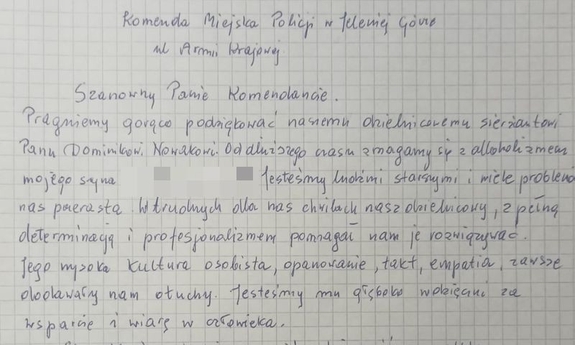 Komenda Miejska Policji w Jeleniej Górze
ul Armii Krajowej
Szanowny Panie Komendancie.
Pragniemy gorąco podziękować naszemu dzielnicowemu sierżantowi
Panu Dominikowi Nowakowi. Od dłuższego czasu zmagamy się z alkoholizmem
mojego syna Jesteśmy ludźmi starszymi i wiele problemó
nas przerasta. W trudnych dla nas chwilach nasz dzielnicowy, z pełną
determinacją i profesjonalizmem pomagał nam je rozwiązywać.
Jego wysoka kultura osobista, opanowanie, takt, empatia, zawsze
dodawały nam otuchy. Jesteśmy mu głęboko wdzięczni za
wsparcie i wiarę w człowieka.